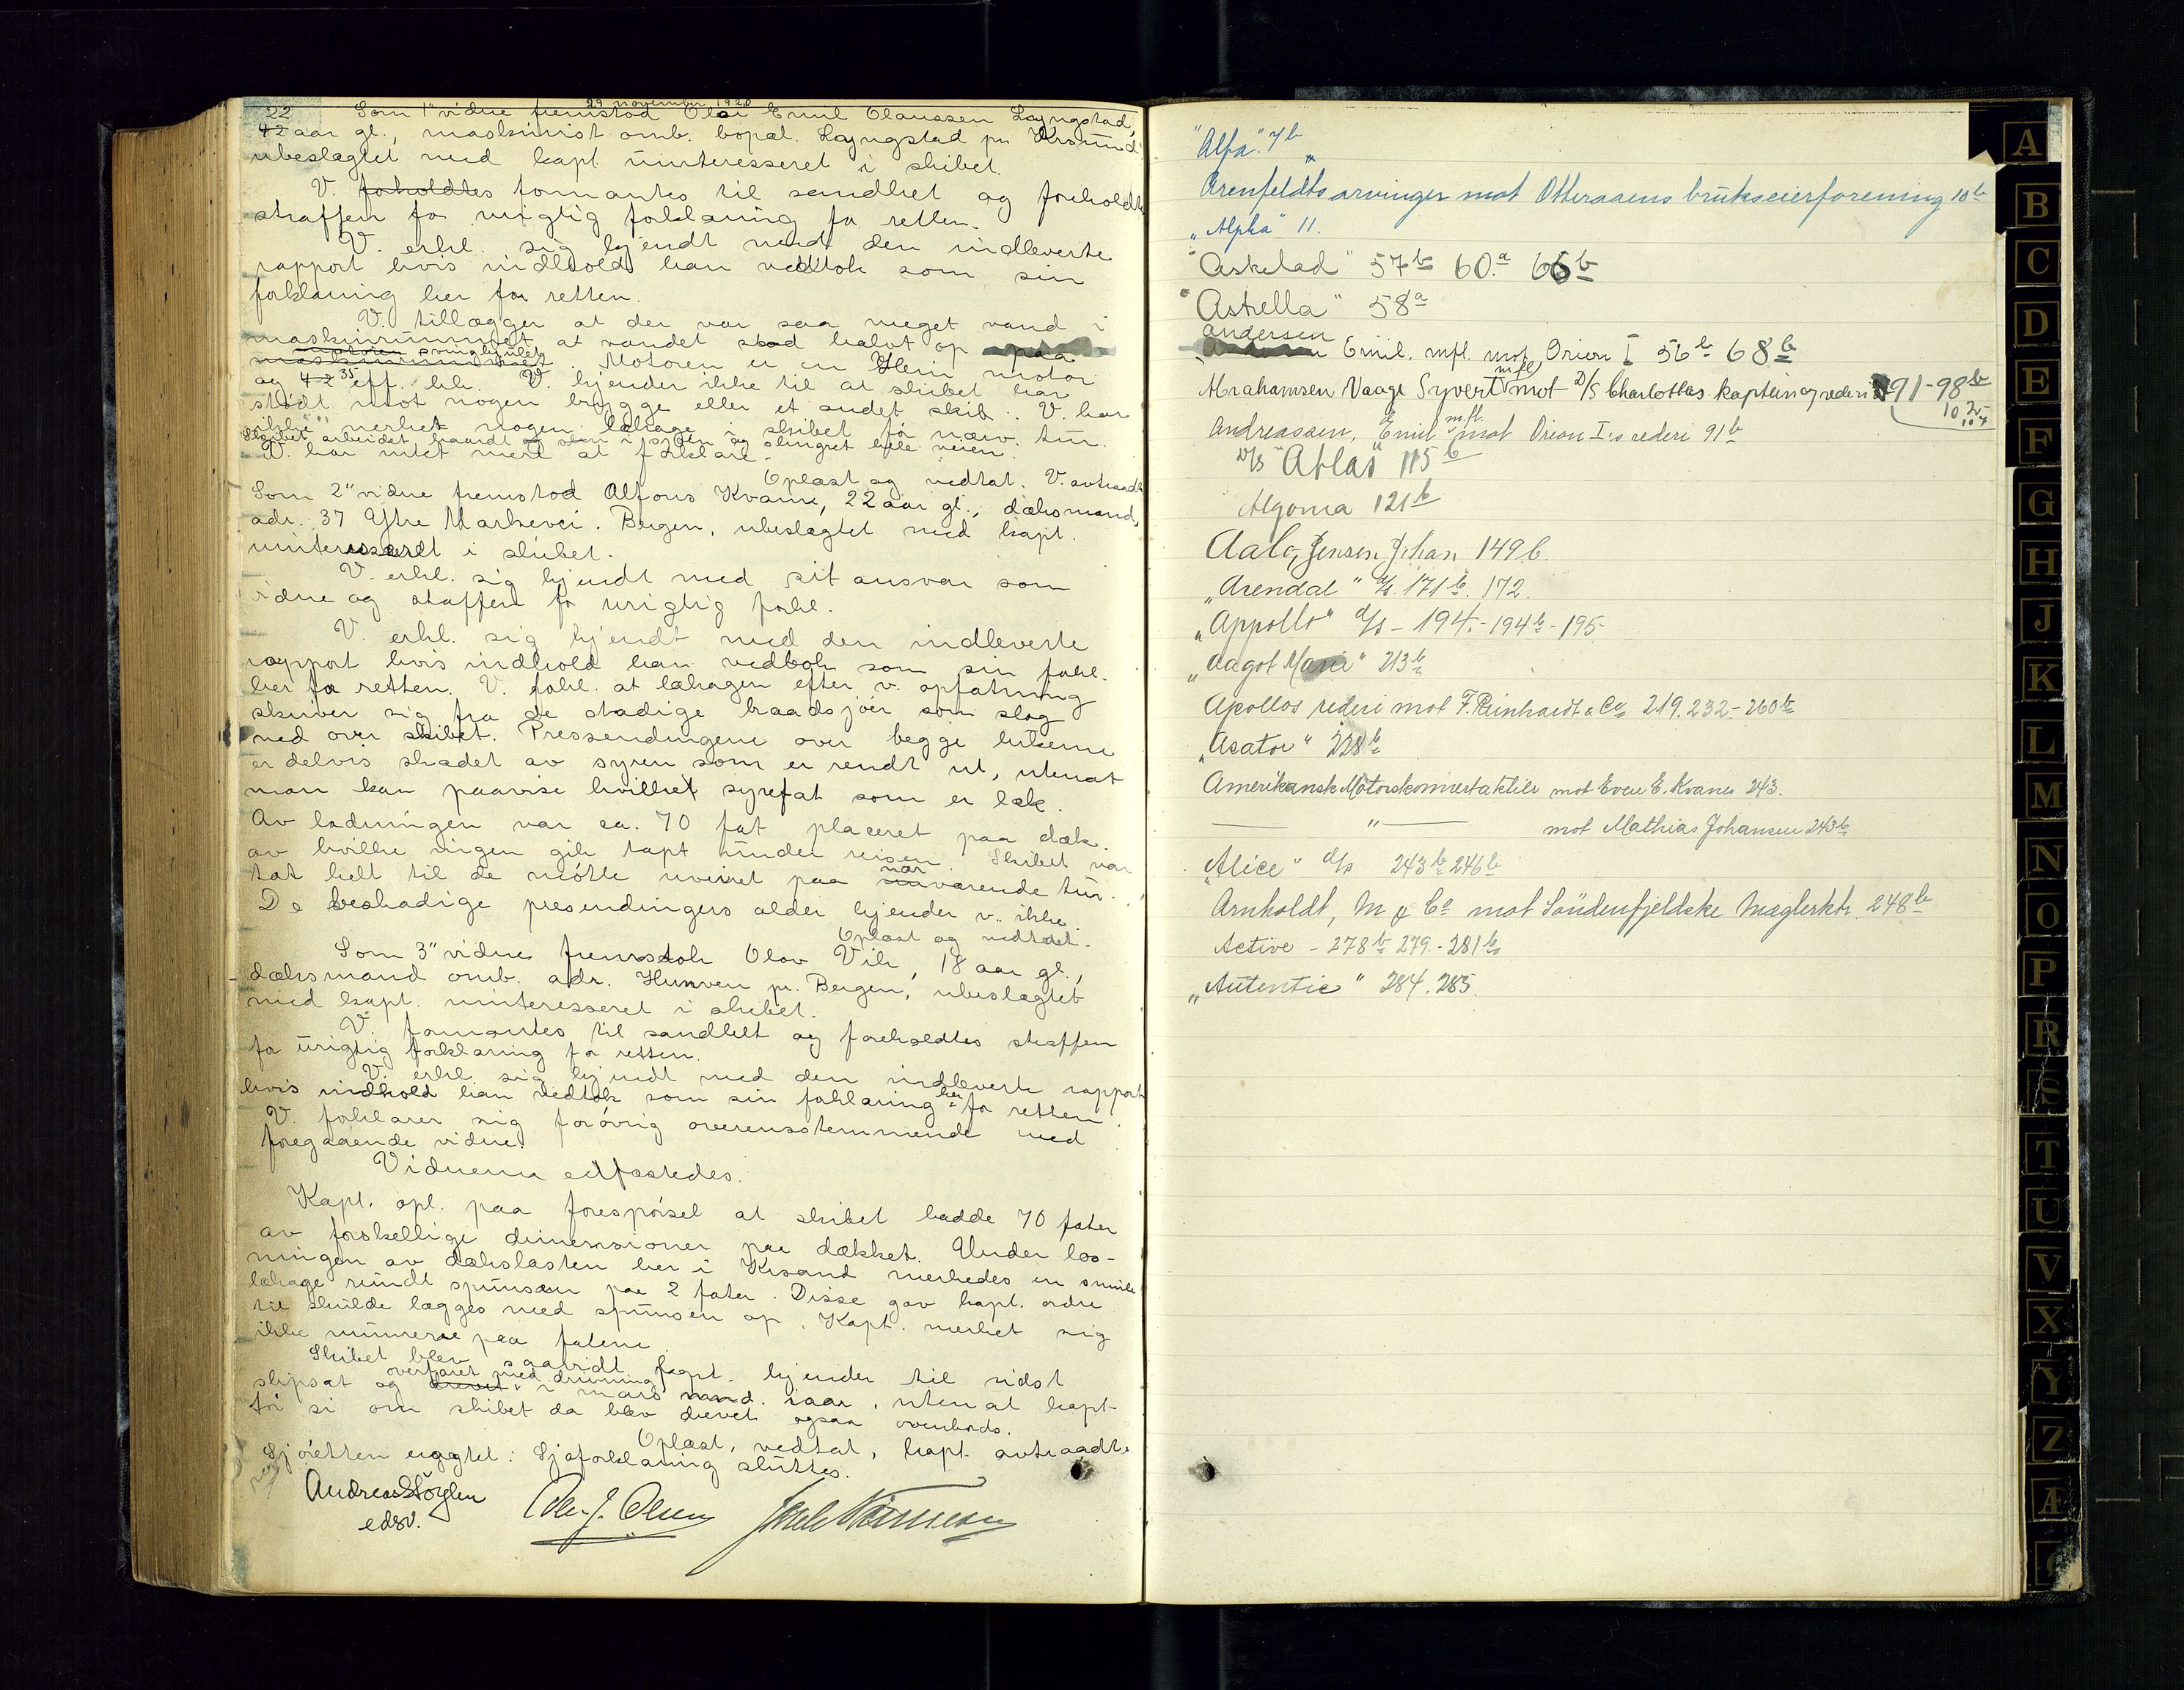 29 november 1920
22 Som 1" vidne fremstod Olai Emil Olaussen Løngstad,
42 aar gl., maskinist omb. bopæl. Løngstad pr. Krsund
ubeslagtet med kapt. uinteresseret i skibet.
V. foholdtes formantes til sandhet og foreholdt
straffen for urigtig forklaring for retten.
V. erkl. sig kjendt med den indleverte
rapport hvis indhold han vedtok som sin
forklaring her for retten.
V. tillægger at der var saa meget vand i
maskinrummet at vandet stod halvt op paa
motoren svinghjulet
maskinrummet. Motoren er en Hein motor
og 42 35 eff. hk. V. kjender ikke til at skibet har
stødt mot nogen brygge eller et andet skib. V. har
ikke merket nogen lækage i skibet før næv. tur.
Skibet arbeidet haardt i sjøen og slingret hele veien.
V. har intet mere at forklare.
Oplæst og vedtat. V. avtraadt
Som 2" vidne fremstod Alfons Kvame, 22 aar gl., dæksmand,
adr. 37 Ytre Markevei. Bergen, ubeslægtet med kapt.
uinteresseret i skibet.
V. erkl. sig kjendt med sit ansvar som
vidne og straffen for urigtig forkl.
V. erkl. sig kjendt med den indleverte
rapport hvis indhold han vedtok som sin forkl.
her for retten. V. forkl. at lækagen efter v. opfatning
skriver sig fra de stadige braadsjøer som slog
ned over skibet. Pressendingene over begge lukerne
er delvis skadet av syren som er rendt ut, uten at
man kan paavise hvilket syrefat som er læk.
Av ladningen var ca. 70 fat placeret paa dæk.
av hvilke ingen gik tapt under reisen. Skibet var
tat helt til de møtte uveiret paa nærværende tur.
De beskadige presendingers alder kjender v. ikke.
Oplæst og vedtatt.
Som 3" vidne fremstok Olav Vik, 18 aar gl.,
dæksmand omb. adr. Hunven pr. Bergen, ubeslægtet
med kapt. uinteresseret i skibet.
V. formantes til sandhet og foreholdtes straffen
for urigtig forklaring for retten.
V. erkl. sig kjendt med den indleverte rapport
hvis indhold han vedtok som sin forklaring her for retten.
V. forklarer sig forøvrig overensstemmende med
foregaaende vidne.
Vidnerne edfæstedes.
Kapt. opl. paa forespørsel at skibet hadde 70 fater
av forskellige dimensioner paa dækket. Under los-
ningen av dækslasten her i Krsand merkedes en smule
lækage rundt spunsen paa 2 fater. Disse gav kapt. ordre
til skulde lægges med spunsen op. Kapt. merket sig
ikke numrene paa fatene.
Skibet blev saavidt kapt. kjender til sidst
slipsat og overfaret med drivning i mars mnd. iaar, uten at kapt.
tør si om skibet da blev drevet ogsaa ovenbords.
Oplæst, vedtat, kapt. avtraadte.
Sjøretten eragtet: Sjøforklaring sluttes.
Andreas Støylen
edsv.
Ole J. Olsen
"Alfa". 7b
Arenfeldts arvinger mot Otteraaens brukseierforening 10b
"Alpha" 11.
"Askelad" 57b 60.a 66b
"Astrella" 58a
Andersen Emil. mfl. mot Orion I 56b 68b
Abrahamsen Vaage Syvert mfl mot D/S Charlottes kaptein og rederi 91-98b
Andreassen, Emil mfl. mot Orion I's rederi 91b
D/S "Atlas" 115b
Algoma 121b
Aalo, Jensen Johan 149b.
"Arendal" d/s. 171b. 172.
"Appollo" d/s - 194.- 194b - 195-
"Aagot Marie" 213b
Apollos rederi mot F. Reinhardt & Co 219. 232- 260b
"Asator" 228b
Amerikansk Motorskonnertaktier mot Even E. Kvanes 243.
— " — mot Mathias Johansen 243b
"Alice" d/s 243b 246b
Arnholdt, M & Co mot Søndenfjeldske Mæglerktr. 248b
Active - 278b 279.- 281b
"Autentic" 284. 285.
A
B
C
D
E
F
G
H
J
K
L
M
N
O
P
R
S
T
U
V
X
Y
Z
Æ